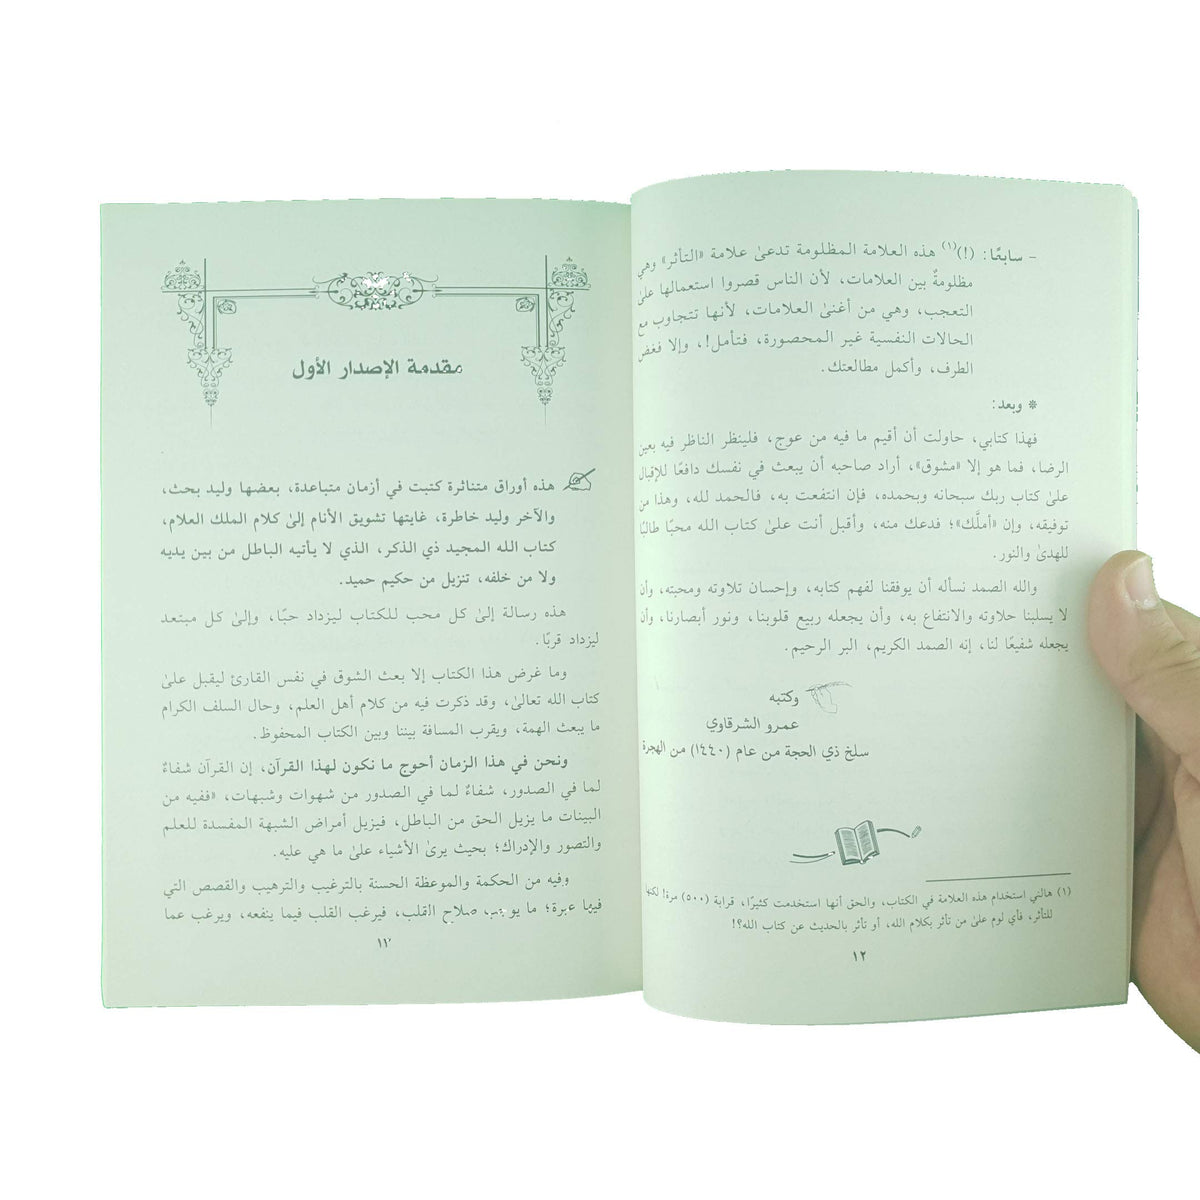 - سابعًا: (!)(١) هذه العلامة المظلومة تدعىٰ علامة «التأثر» وهي
مظلومةٌ بين العلامات، لأن الناس قصروا استعمالها علىٰ
التعجب، وهي من أغنىٰ العلامات، لأنها تتجاوب مع
الحالات النفسية غير المحصورة، فتأمل!، وإلا فغض
الطرف، وأكمل مطالعتك.
* وبعد:
فهذا كتابي، حاولت أن أقيم ما فيه من عوج، فلينظر الناظر فيه بعين
الرضا، فما هو إلا «مشوق»، أراد صاحبه أن يبعث في نفسك دافعًا للإقبال
علىٰ كتاب ربك سبحانه وبحمده، فإن انتفعت به، فالحمد لله، وهذا من
توفيقه، وإن «أملَّك»؛ فدعك منه، وأقبل أنت علىٰ كتاب الله محبًا طالبًا
للهدىٰ والنور.
والله الصمد نسأله أن يوفقنا لفهم كتابه، وإحسان تلاوته ومحبته، وأن
لا يسلبنا حلاوته والانتفاع به، وأن يجعله ربيع قلوبنا، ونور أبصارنا، وأن
يجعله شفيعًا لنا، إنه الصمد الكريم، البر الرحيم.
وكتبه
عمرو الشرقاوي
سلخ ذي الحجة من عام (١٤٤٠) من الهجرة
(١) هالني استخدام هذه العلامة في الكتاب، والحق أنها استخدمت كثيرًا، قرابة (٥٠٠) مرة! لكنها
للتأثر، فأي لوم علىٰ من تأثر بكلام الله، أو تأثر بالحديث عن كتاب الله؟!
١٢
مقدمة الإصدار الأول
هذه أوراق متناثرة كتبت في أزمان متباعدة، بعضها وليد بحث،
والآخر وليد خاطرة، غايتها تشويق الأنام إلىٰ كلام الملك العلام،
كتاب الله المجيد ذي الذكر، الذي لا يأتيه الباطل من بين يديه
ولا من خلفه، تنزيل من حكيم حميد.
هذه رسالة إلىٰ كل محب للكتاب ليزداد حبًا، وإلىٰ كل مبتعد
ليزداد قربًا.
وما غرض هذا الكتاب إلا بعث الشوق في نفس القارئ ليقبل علىٰ
كتاب الله تعالىٰ، وقد ذكرت فيه من كلام أهل العلم، وحال السلف الكرام
ما يبعث الهمة، ويقرب المسافة بيننا وبين الكتاب المحفوظ.
ونحن في هذا الزمان أحوج ما نكون لهذا القرآن، إن القرآن شفاءٌ
لما في الصدور، شفاءٌ لما في الصدور من شهوات وشبهات، «ففيه من
البينات ما يزيل الحق من الباطل، فيزيل أمراض الشبهة المفسدة للعلم
والتصور والإدراك؛ بحيث يرىٰ الأشياء علىٰ ما هي عليه.
وفيه من الحكمة والموعظة الحسنة بالترغيب والترهيب والقصص التي
فيها عبرة؛ ما يوجب صلاح القلب، فيرغب القلب فيما ينفعه، ويرغب عما